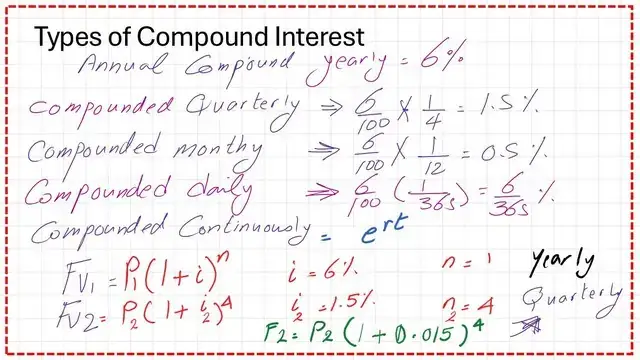 Types of Compound Interest
Annual Compound yearly = 6%
Compounded Quarterly ⇒ 6/100 × 1/4 = 1.5%
Compounded monthy ⇒ 6/100 × 1/12 = 0.5%
Compounded daily ⇒ 6/100 (1/365) = 6/365 %
Compounded Continuously = e^rt
Fv₁ = P₁(1+i)^n i = 6% n = 1 yearly
Fv₂ = P₂(1+i₂)^4 i₂ = 1.5% n₂ = 4 Quarterly
F₂ = P₂(1+0.015)^4